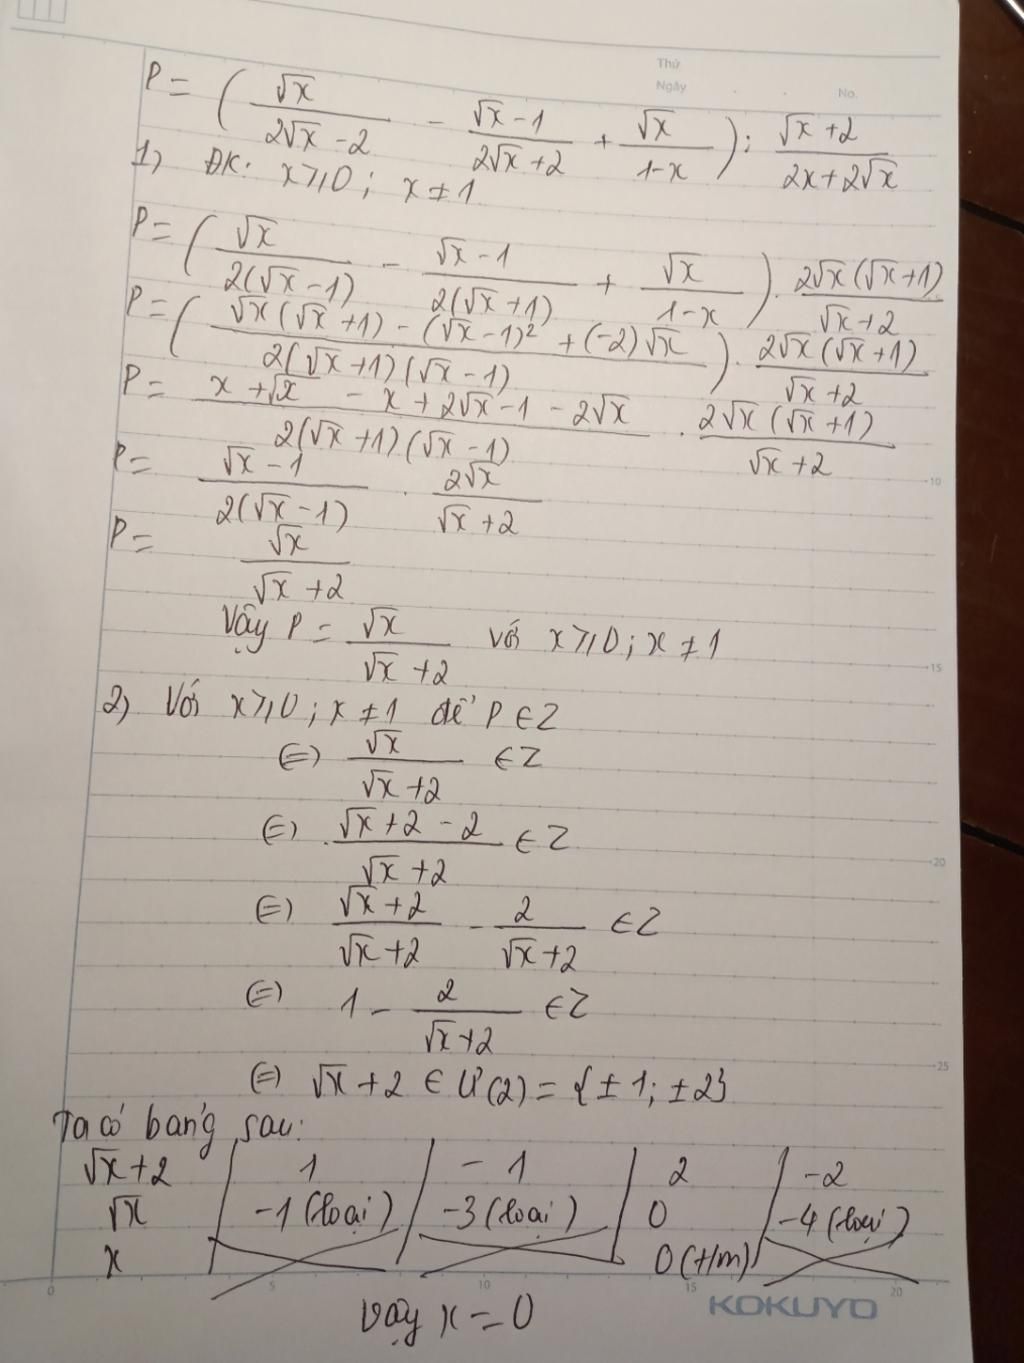 Thứ
Ngày
No.
P = ( √x / (2√x - 2) - (√x - 1) / (2√x + 2) + √x / (1-x) ) : (√x + 2) / (2x + 2√x)
1) ĐK: x ⩾ 0 ; x ≠ 1
P = ( √x / 2(√x - 1) - (√x - 1) / 2(√x + 1) + √x / (1-x) ) . 2√x (√x + 1) / (√x + 2)
P = ( (√x (√x + 1) - (√x - 1)² + (-2)√x) / 2(√x + 1)(√x - 1) ) . 2√x (√x + 1) / (√x + 2)
P = (x + √x - x + 2√x - 1 - 2√x) / 2(√x + 1)(√x - 1) . 2√x (√x + 1) / (√x + 2)
P = (√x - 1) / 2(√x - 1) . 2√x / (√x + 2)
P = √x / (√x + 2)
Vậy P = √x / (√x + 2) với x ⩾ 0 ; x ≠ 1
2) Với x ⩾ 0 ; x ≠ 1 để P ∈ Z
(=) √x / (√x + 2) ∈ Z
(=) (√x + 2 - 2) / (√x + 2) ∈ Z
(=) (√x + 2) / (√x + 2) - 2 / (√x + 2) ∈ Z
(=) 1 - 2 / (√x + 2) ∈ Z
(=) √x + 2 ∈ Ư(2) = {± 1; ± 2}
Ta có bảng sau:
√x + 2 | 1 | - 1 | 2 | - 2
√x | -1 (loại) | -3 (loại) | 0 | -4 (loại)
x | | | 0 (t/m) |
Vậy x = 0
KOKUYO
10
15
20
25
0 5 10 15 20